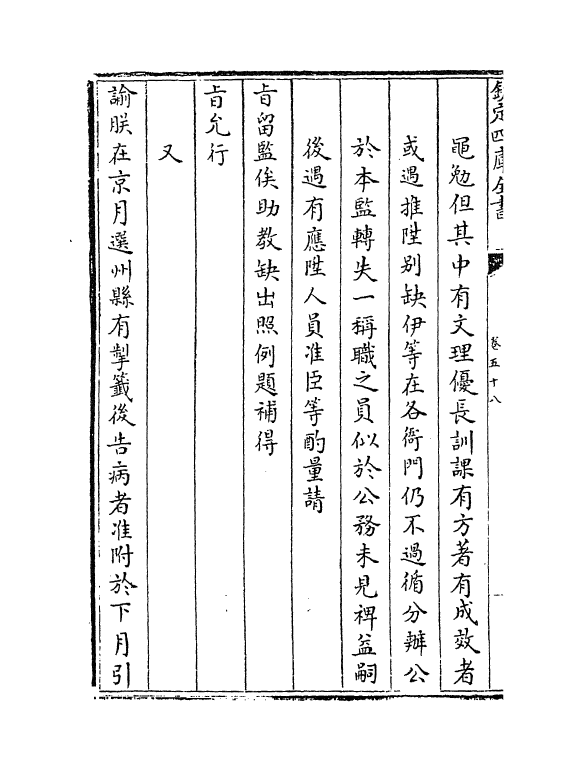 欽定四庫全書
卷五十八
黽勉但其中有文理優長訓課有方著有成效者
或遇推陞别缺伊等在各衙門仍不過循分辦公
於本監轉失一稱職之員似於公務未見裨益嗣
後遇有應陞人員准臣等酌量請
㫖留監俟助教缺出照例題補得
㫖允行
又
諭朕在京月選州縣有掣籤後告病者准附於下月引